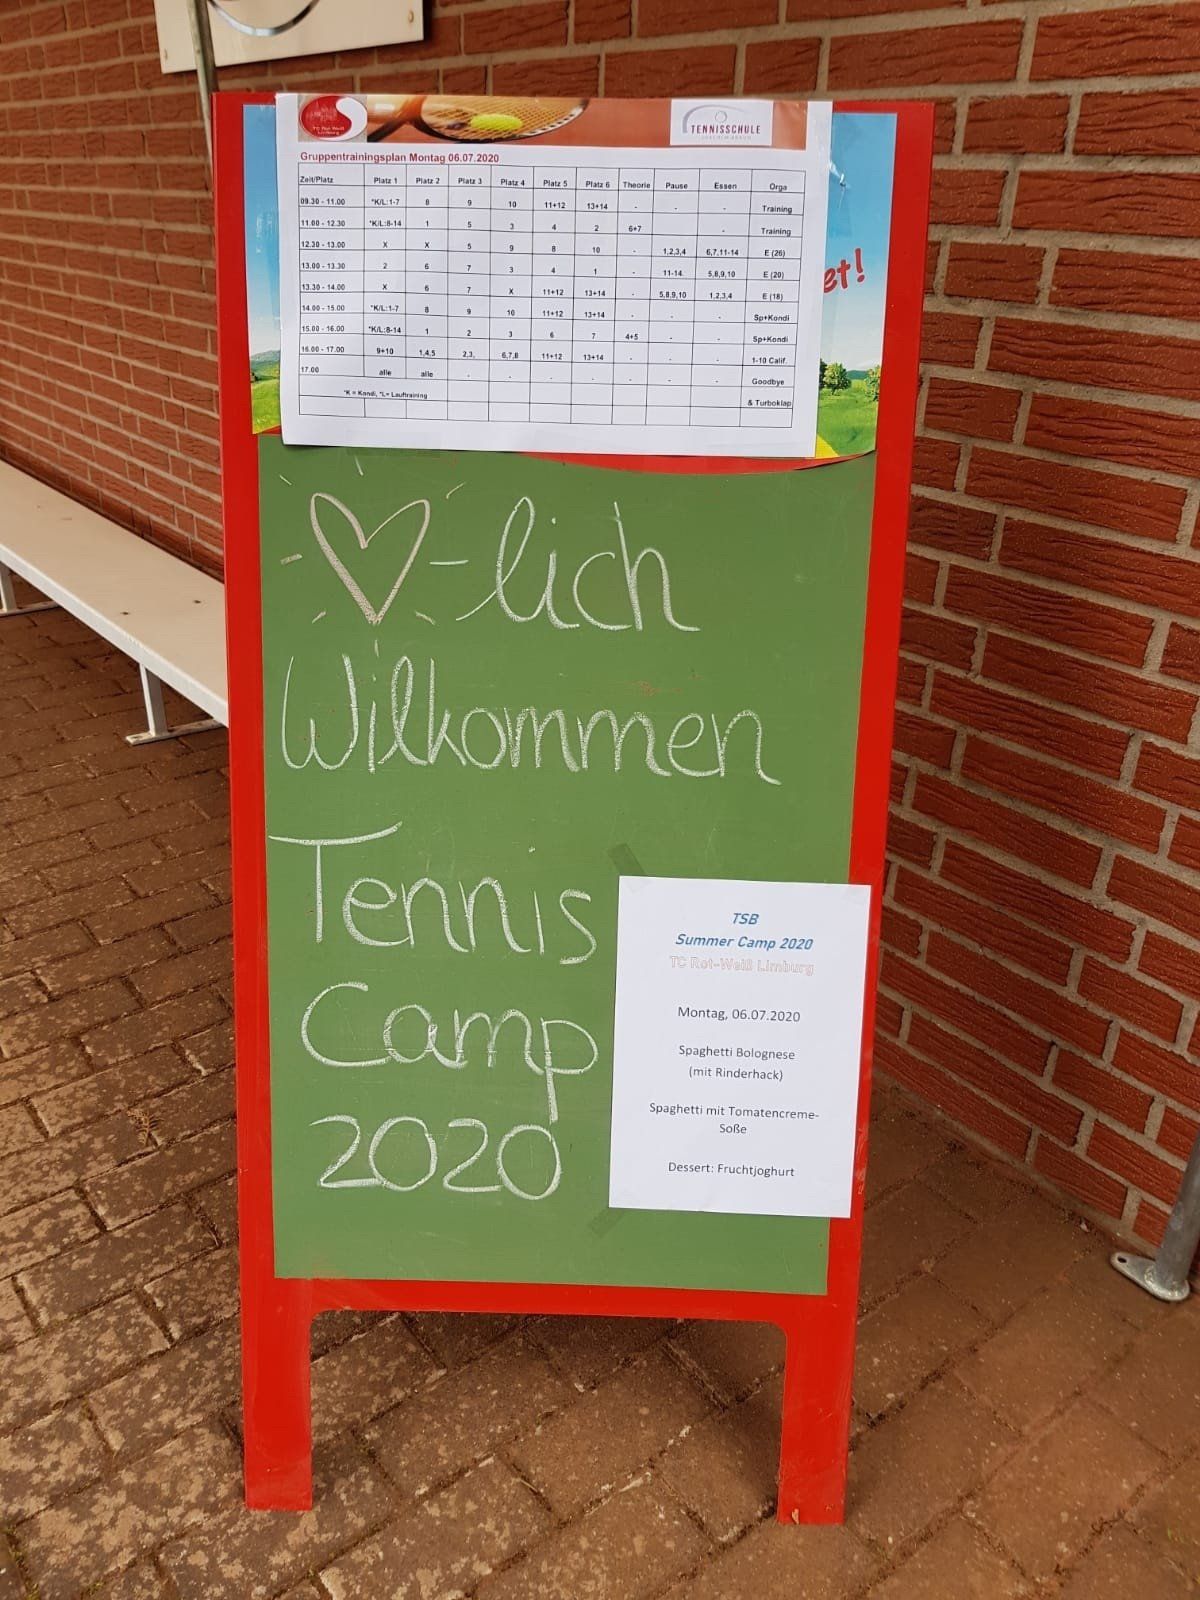 TC Rot-Weiß
Limburg
TENNISSCHULE
Gruppentrainingsplan Montag 06.07.2020
Zeit/Platz Platz 1 Platz 2 Platz 3 Platz 4 Platz 5 Platz 6 Theorie Pause Essen Orga
09.30 - 11.00 *K/L:1-7 8 9 10 11+12 13+14 - - - Training
11.00 - 12.30 *K/L:8-14 1 5 3 4 2 6+7 - Training
12.30 - 13.00 X X 5 9 8 10 - 1,2,3,4 6,7,11-14 E (26)
13.00 - 13.30 2 6 7 3 4 1 - 11-14 5,8,9,10 E (20)
13.30 - 14.00 X 6 7 X 11+12 13+14 - 5,8,9,10 1,2,3,4 E (18)
14.00 - 15.00 *K/L:1-7 8 9 10 11+12 13+14 - - - Sp+Kondi
15.00 - 16.00 *K/L:8-14 1 2 3 6 7 4+5 - - Sp+Kondi
16.00 - 17.00 9+10 1,4,5 2,3, 6,7,8 11+12 13+14 - - - 1-10 Calif.
17.00 alle alle - - - - - - - Goodbye
*K = Kondi, *L= Lauftraining & Turboklap
et!
-lich
Wilkommen
Tennis
Camp
2020
TSB
Summer Camp 2020
TC Rot-Weiß Limburg
Montag, 06.07.2020
Spaghetti Bolognese
(mit Rinderhack)
Spaghetti mit Tomatencreme-
Soße
Dessert: Fruchtjoghurt